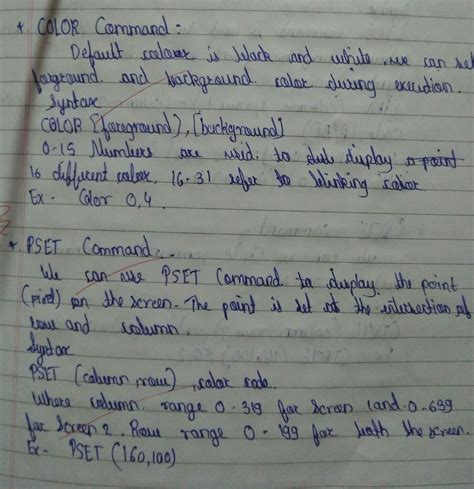 * COLOR Command:
Default colour is black and white, we can set
forground and background color during execution.
Syntax
COLOR [foreground], [background]
0-15 Numbers are used to display
16 different colour. 16-31 refer to blinking color
Ex- Color 0,4.
* PSET Command:-
We can use PSET Command to display the point
(pixel) on the screen. The point is set at the intersection of
row and column.
Syntax
PSET (column, row), color code.
Where column range 0-319 for screen 1 and 0-639
for screen 2. Row range 0-199 for both the screen.
Ex- PSET (160,100)